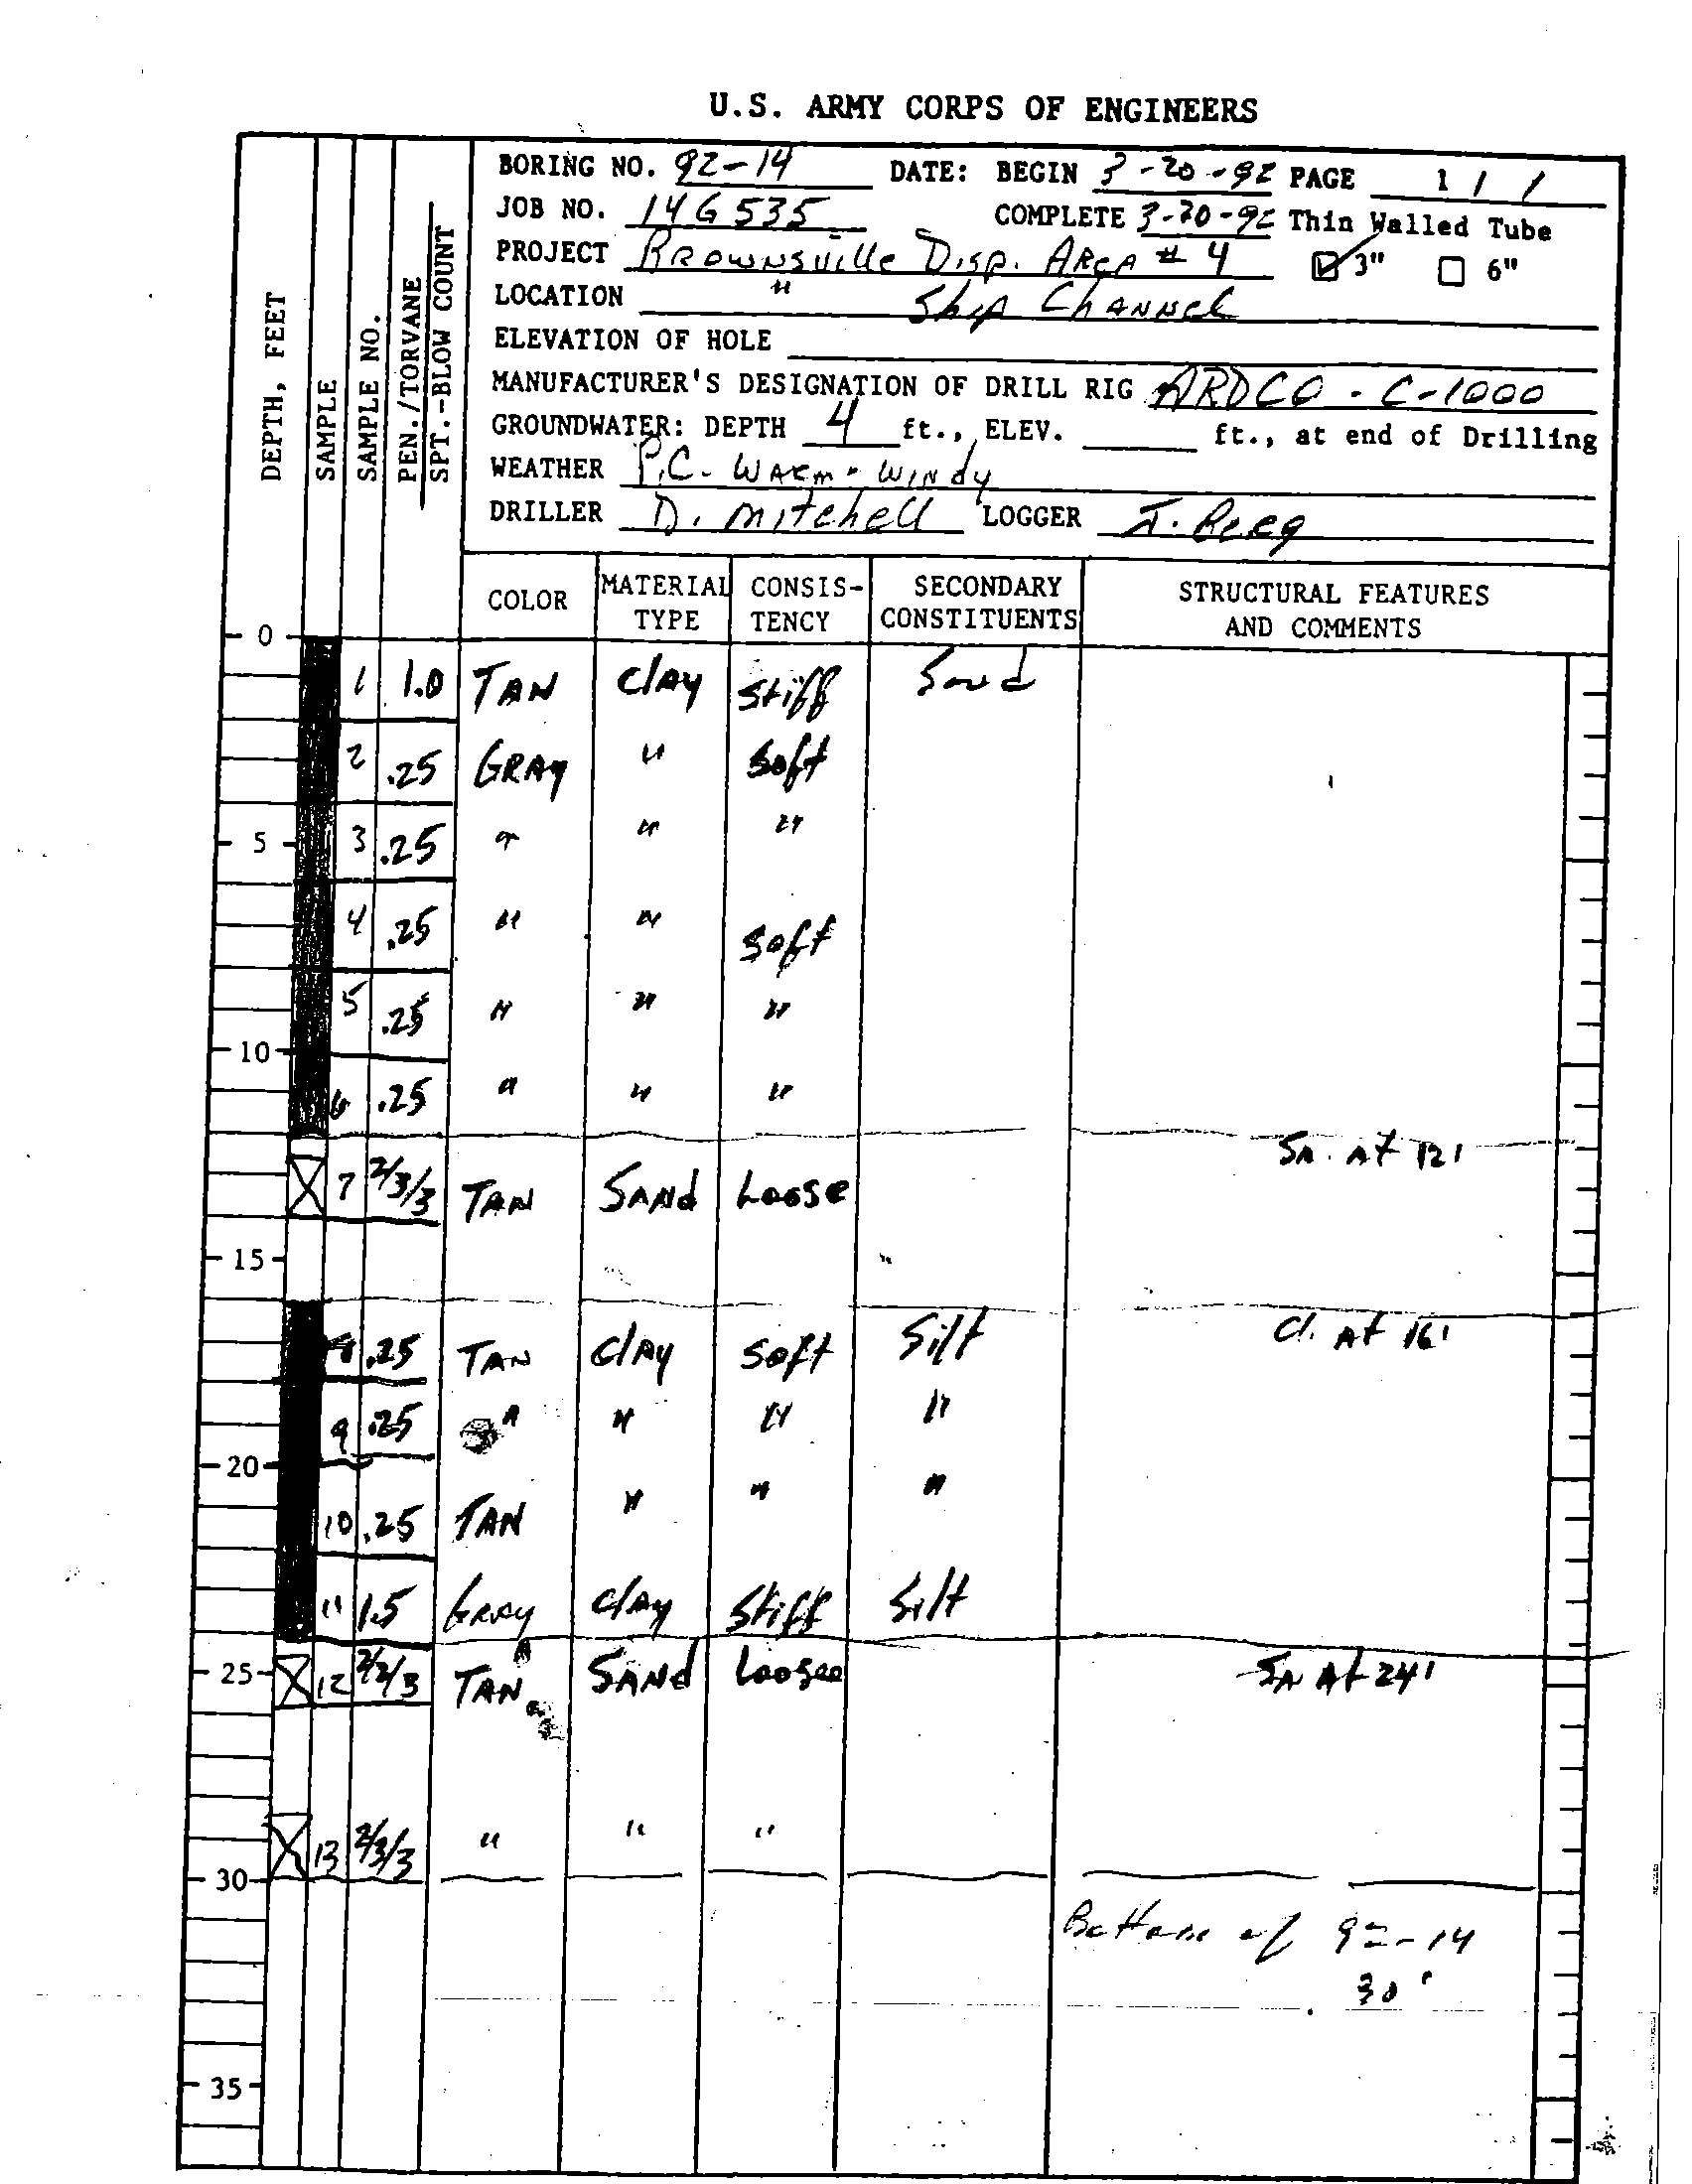 U.S. ARMY CORPS OF ENGINEERS
BORING NO. 92-14 DATE: BEGIN 3-20-92 PAGE 1 / 1
JOB NO. 14G535 COMPLETE 3-20-92 Thin Walled Tube
PROJECT Brownsville Disp. Area # 4 3" 6"
LOCATION " Ship Channel
ELEVATION OF HOLE
MANUFACTURER'S DESIGNATION OF DRILL RIG ARDCO - C-1000
GROUNDWATER: DEPTH 4 ft., ELEV. ft., at end of Drilling
WEATHER P.C. - Warm - Windy
DRILLER D. Mitchell LOGGER J.
DEPTH, FEET
SAMPLE
SAMPLE NO.
PEN./TORVANE
SPT.-BLOW COUNT
COLOR MATERIAL TYPE CONSIS-TENCY SECONDARY CONSTITUENTS STRUCTURAL FEATURES AND COMMENTS
0
1 1.0 TAN Clay Stiff Sand
2 .25 GRAY " Soft
5 3 .25 " " "
4 .25 " " Soft
5 .25 " " "
10
6 .25 " " "
SA. AT 12'
7 2/3/3 TAN SAND Loose
15
8 .25 TAN Clay Soft Silt Cl. AT 16'
9 .25 " " " "
20
10 .25 TAN " " "
11 1.5 Gray Clay Stiff Silt
25 12 2/2/3 TAN SAND Loose SA AT 24'
13 2/3/3 " " "
30
Bottom of 92-14
30'
35